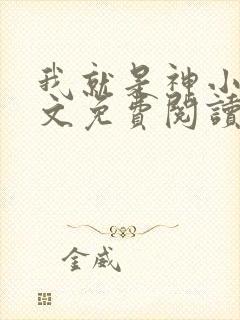 我就是神小
文免費閱讀
金威